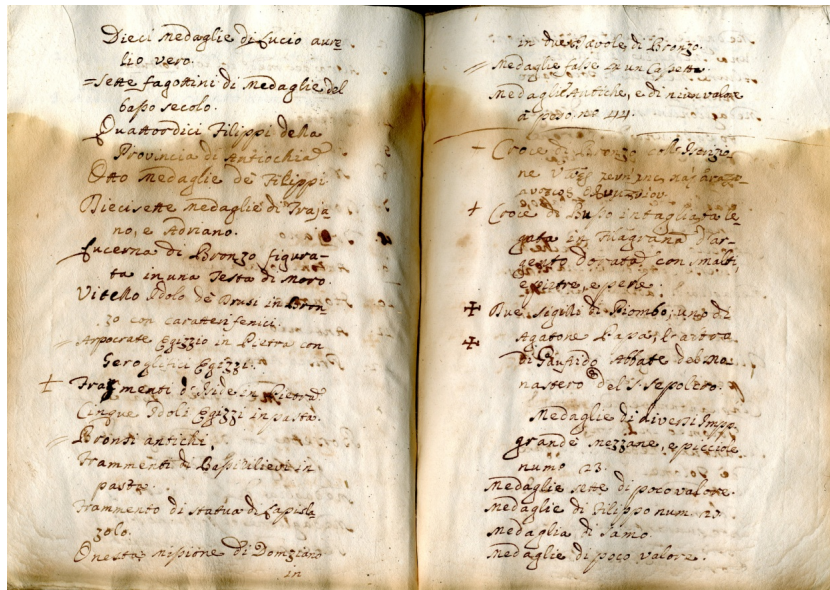 Dieci Medaglie di Lucio aure
lio vero.
= Sette fagottini di Medaglie del
basso secolo.
Quattordici Filippi della
Provincia di Antiochia
Otto Medaglie de Filippi
Diecisette Medaglie di Traja
no, e Adriano.
Lucerna di Bronzo figura-
ta in una Testa di Moro.
Vitello Idolo de Drusi in Bron
zo con caratteri fenici.
Arpocrate Egizzio in Pietra con
Geroglifici Egizzi.
Frammenti d'Iside in Pietra
Cinque Idoli Egizzi in pasta.
= Bronzi antichi,
Frammenti di Bassirilievi in
pasta.
Frammento di statua di Lapisla
zolo.
Onesta missione di Domziano
in
in due Tavole di Bronzo.
= Medaglie false in un Cassetto
Medaglie Antiche, e di niun valore
a peso no 44.
+ Croce di Bronzo coll' Iscrizio
ne
+ Croce di Busso intagliata le
gata in Filagrana d'ar-
gento dorata con smalti,
e pietre, e perle.
✠ Due Sigilli di Piombo, uno di
✠ Agatone Papa, l'altro
di Gaufrido Abbate del Mo
nastero del S. Sepolcro.
Medaglie di diversi Imp.
grande mezzane, e picciole
numo 123.
Medaglie sette di poco valore.
Medaglie di Filippo num.
Medaglia di Samo.
Medaglie di poco valore.